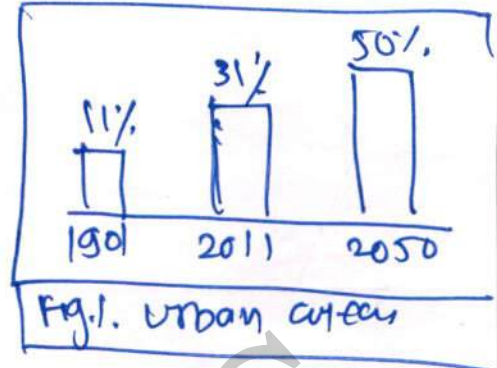 11% 31% 50%
1901 2011 2050
Fig.1. Urban areas